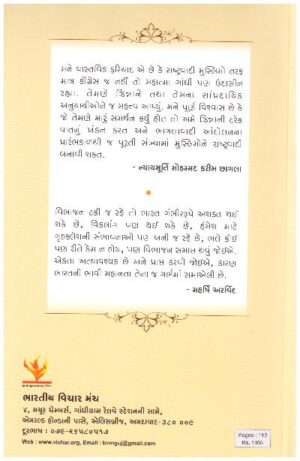 મને વાસ્તવિક ફરિયાદ એ છે કે રાષ્ટ્રવાદી મુસ્લિમો તરફ
માત્ર કોંગ્રેસ જ નહીં તો મહાત્મા ગાંધી પણ ઉદાસીન
રહ્યા. તેમણે ઝિન્ના તથા તેમના સાંપ્રદાયિક
અનુયાયીઓને જ મહત્ત્વ આપ્યું. મને પૂર્ણ વિશ્વાસ છે કે
જો તેમણે મારું સમર્થન કર્યું હોત તો અમે ઝિન્નાની દરેક
વાતનું ખંડન કરત અને ભાગલાવાદી આંદોલનના
પ્રારંભકાળથી જ પૂરતી સંખ્યામાં મુસ્લિમોને રાષ્ટ્રવાદી
બનાવી શકત.
- ન્યાયમૂર્તિ મોહમ્મદ કરીમ છાગલા
વિભાજન ટકી જ રહે તો ભારત ગંભીરરૂપે અશક્ત થઈ
શકે છે, વિકલાંગ પણ થઈ શકે છે, હંમેશ માટે
ગૃહકલેશની સંભાવનાઓ પણ બની જ રહે છે, ભલે કોઈ
પણ રીતે કેમ ન હોય, પણ વિભાજન સમાપ્ત થવું જોઈએ.
એકતા અત્યાવશ્યક છે અને પ્રાપ્ત કરવી જોઈએ, કારણ
ભારતની ભાવી મહાનતા તેના જ ગર્ભમાં સમાએલી છે.
- મહર્ષિ અરવિંદ
ભારતીય વિચાર મંચ
૪, મયૂર ચેમ્બર્સ, ગાંધીગ્રામ રેલવે સ્ટેશનની સામે,
એમરલ્ડ હોન્ડાની પાસે, એલિસબ્રીજ, અમદાવાદ-૩૮૦ ૦૦૯
દૂરભાષ : ૦૭૯-૨૬૫૮૦૫૧૭
Web : www.vichar.org, Email : bvmguj@gmail.com
Pages : 112
Rs. 110/-